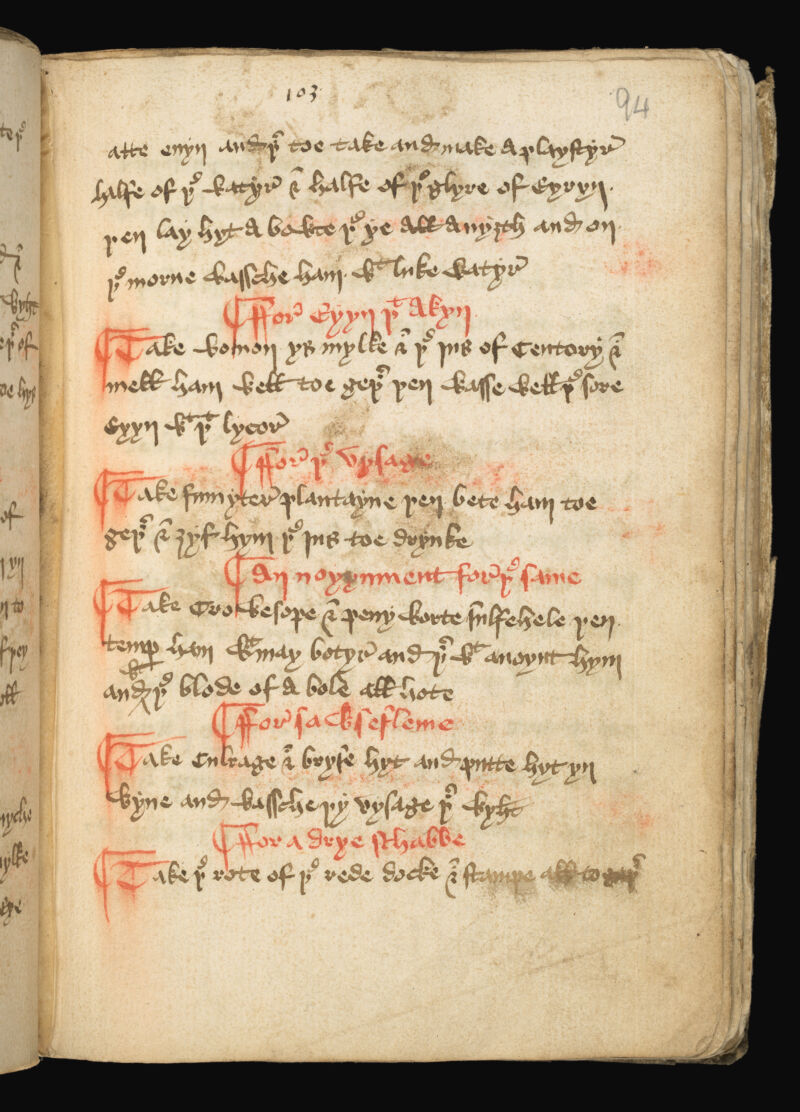 103
94
atte euyn and þr toe take and make A playstyr
halfe of þe watyr & halfe of þe glyre of Eyryn.
þen lay hyt A bowte þe ye All A nyȝth and on
þe morne wassche ham. wt luke watyr
¶ ffor Eyyn þt Akyn
¶ Take womon ys mylke & þe ius of Centory &
mell ham well toe geþr þen wasse well þe sore
Eyyn wt þt lycor
¶ ffor þe vysage
¶ Take fumyter plantayne þen bete ham toe
geþr & ȝyf hym þe ius toe drynke
¶ An noyynment for þe same
¶ Take Crowesope & peny worte sulfehele þen
temp han wt may botyr and þr wt anoynt hym
and wt þe blode of A bole all hote
¶ ffor sawsefleme
¶ Take Culrage & bryse hyt and putte hyt yn
wyne and wassche þy vysage þr wyht
¶ ffor a drye schabbe
¶ Take þe rote of þe rede docke & stampe all to geþr